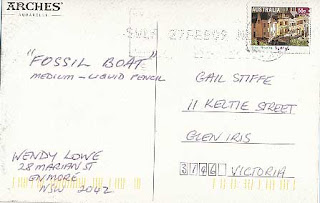 ARCHES
AQUARELLE
AUSTRALIA 55c
"FOSSIL BOAT"
MEDIUM - LIQUID PENCIL
GAIL STIFFE
11 KELTIE STREET
GLEN IRIS
VICTORIA
WENDY LOWE
28 MARIAN ST
ENMORE
NSW 2042